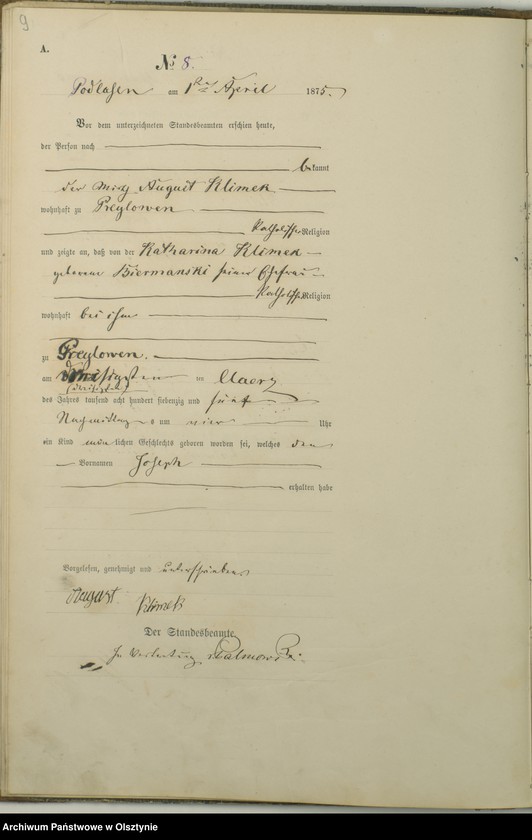 9
A.
№ 8.
Podlassen am 1ten April 1875.
Vor dem unterzeichneten Standesbeamten erschien heute,
der Person nach
bekannt
der August Klimek
wohnhaft zu Preylowen
Katholisch Religion
und zeigte an, daß von der Katharina Klimek
geborene Biermanski seiner Ehefrau
Katholisch Religion
wohnhaft bei ihm
zu Preylowen.
am ten Maerz
des Jahres tausend acht hundert siebenzig und fünf
Nachmittags um vier Uhr
ein Kind männlichen Geschlechts geboren worden sei, welches den
Vornamen Joseph
erhalten habe
Vorgelesen, genehmigt und unterschrieben
August Klimek
Der Standesbeamte.
In Vertretung
Archiwum Państwowe w Olsztynie